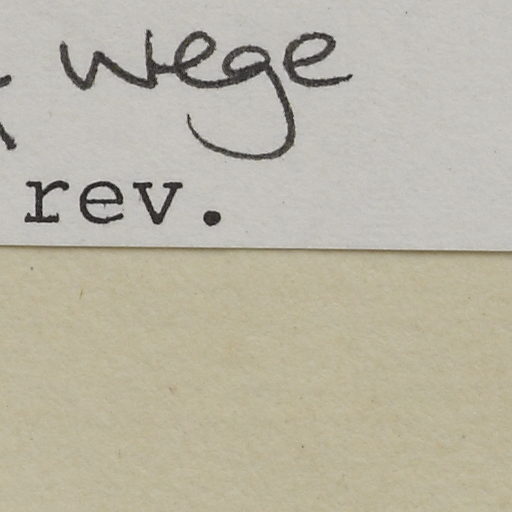 wege
rev.